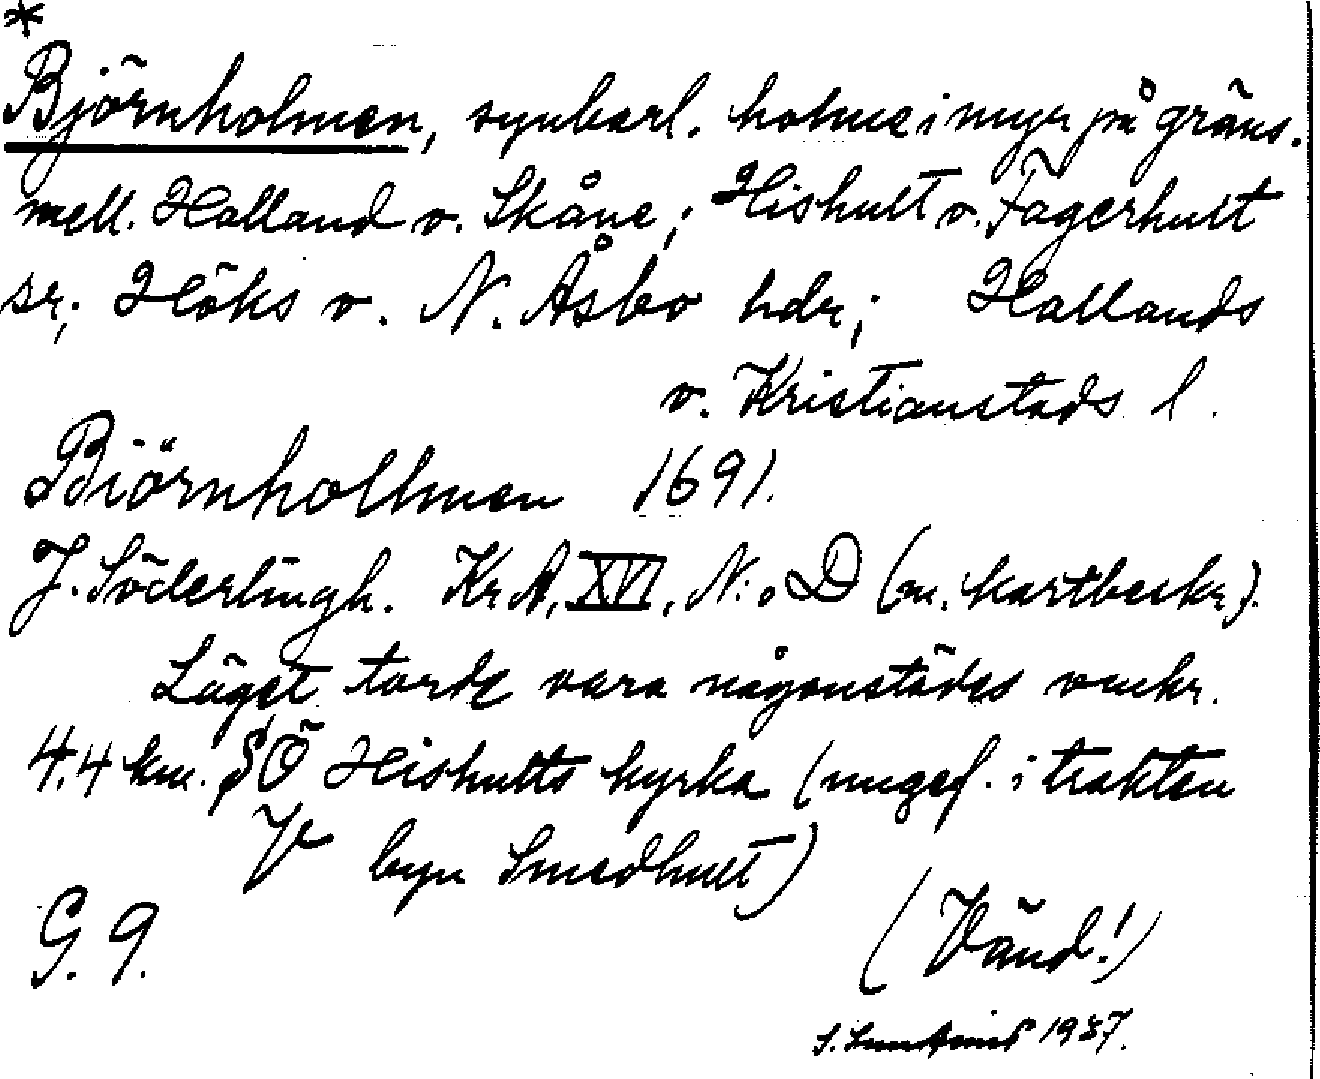 *
Björnholmen, synbarl. holme i myr på gräns.
mell. Halland o. Skåne; Hishult o. Fagerhult
sr; Höks o. N. Åsbo hdr; Hallands
o. Kristianstads l.
Biörnhollmen 1691.
J. Söderlingh. Kr A, XVI, N:o D (m. kartbeskr).
Läget torde vara någonstädes omkr.
4.4 km. SÖ Hishults kyrka (ungef. i trakten
V byn Smedhult)
G. 9.
(Vänd!)
S. 1937.